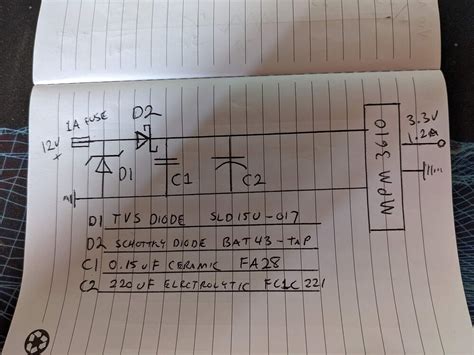 1A FUSE
D2
12V
+
D1
C1
C2
MPM3610
3.3V
1.2A
D1 TVS DIODE SLD15U-017
D2 SCHOTTKY DIODE BAT43-TAP
C1 0.15uF CERAMIC FA28
C2 220uF ELECTROLYTIC FC1C221